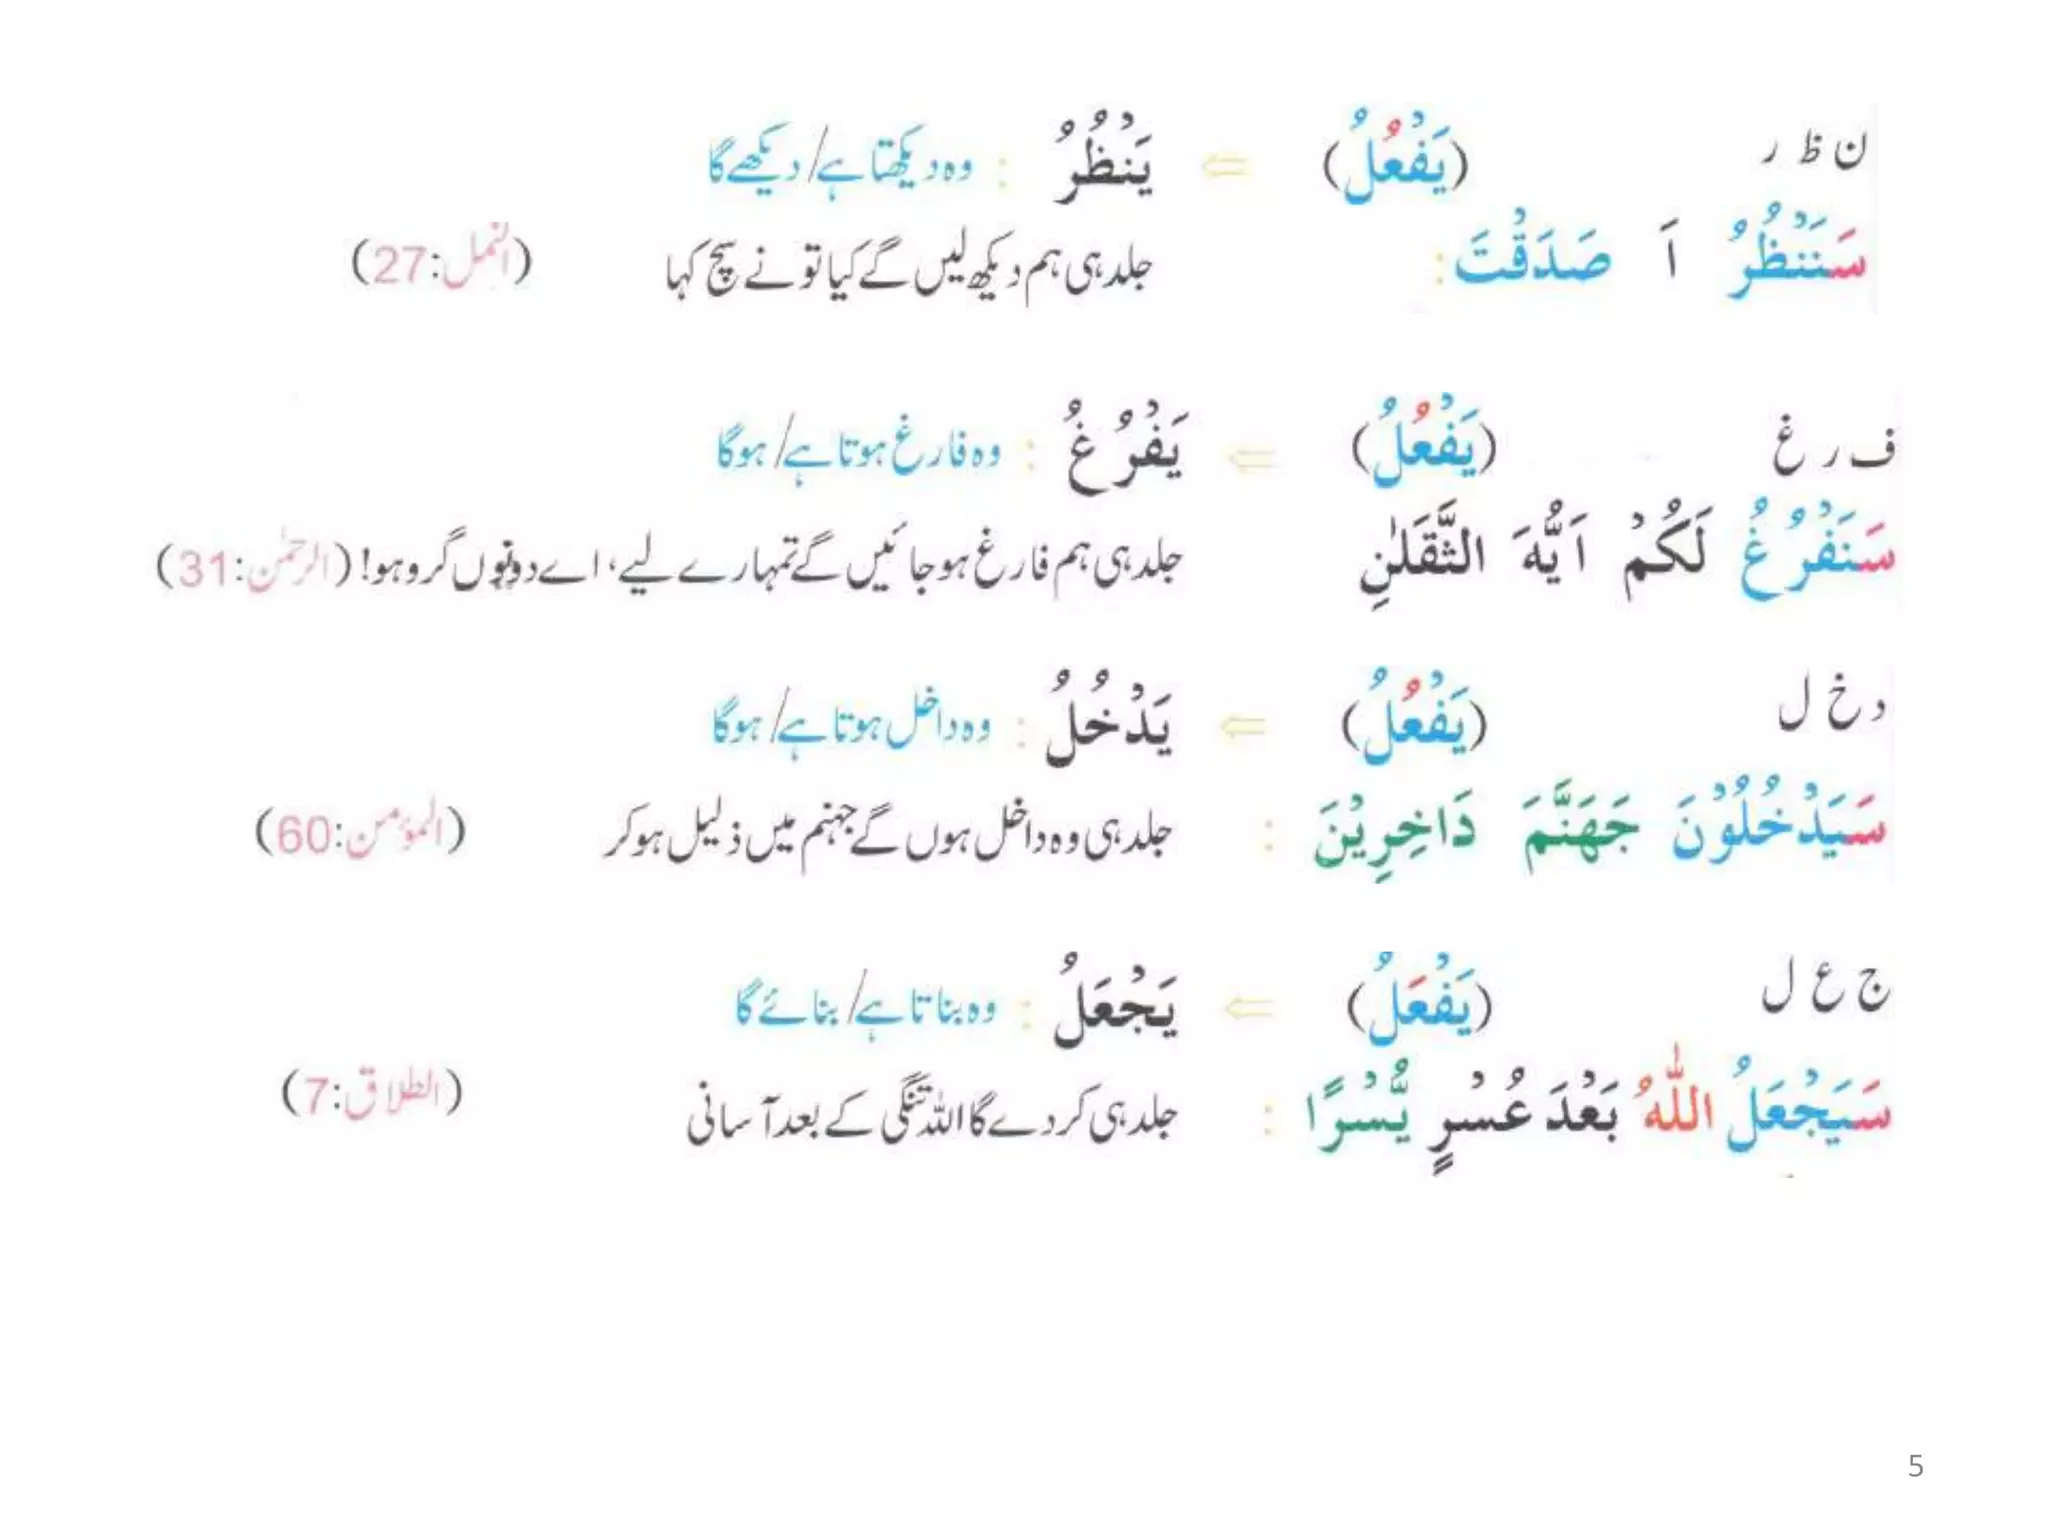 ن ظ ر (يَفْعُلُ) ⇐ يَنْظُرُ : وہ دیکھتا ہے/دیکھے گا
سَنَنْظُرُ اَ صَدَقْتَ: جلد ہی ہم دیکھ لیں گے کیا تو نے سچ کہا (النمل:27)
ف ر غ (يَفْعُلُ) ⇐ يَفْرُغُ : وہ فارغ ہوتا ہے/ہوگا
سَنَفْرُغُ لَكُمْ اَيُّهَ الثَّقَلٰنِ جلد ہی ہم فارغ ہو جائیں گے تمہارے لیے، اے دونوں گروہو! (الرحمٰن:31)
د خ ل (يَفْعُلُ) ⇐ يَدْخُلُ : وہ داخل ہوتا ہے/ہوگا
سَيَدْخُلُوْنَ جَهَنَّمَ دَاخِرِيْنَ : جلد ہی وہ داخل ہوں گے جہنم میں ذلیل ہو کر (المؤمن:60)
ج ع ل (يَفْعَلُ) ⇐ يَجْعَلُ : وہ بناتا ہے/بنائے گا
سَيَجْعَلُ اللّٰهُ بَعْدَ عُسْرٍ يُّسْرًا : جلد ہی کر دے گا اللہ تنگی کے بعد آسانی (الطلاق:7)
5